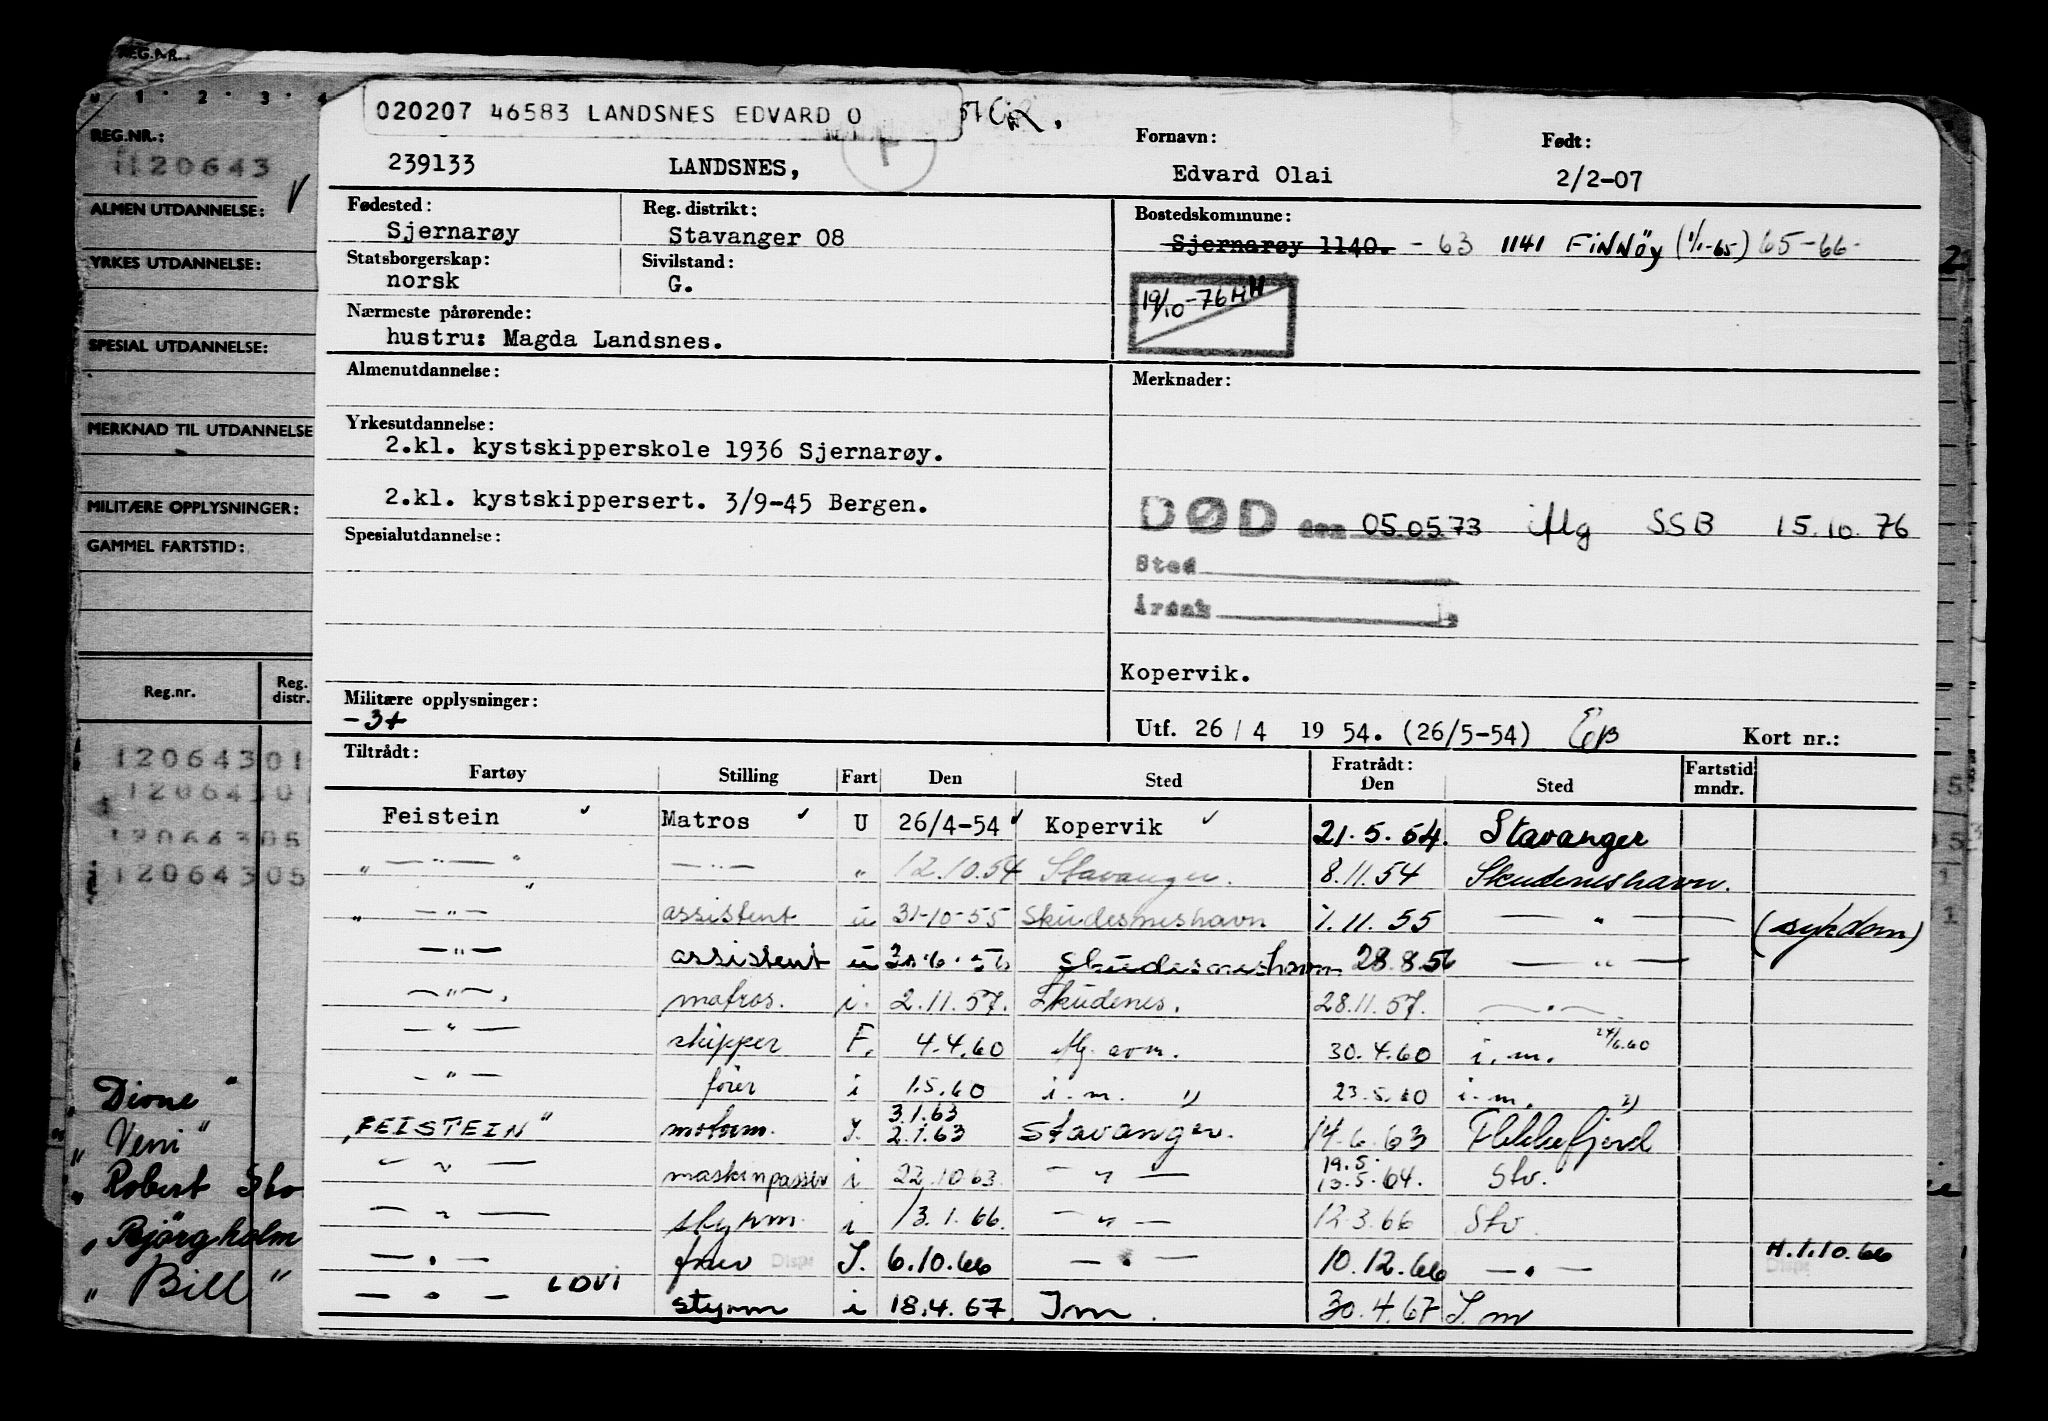 REG.NR.:
1 2 3 4
020207 46583 LANDSNES EDVARD O
REG.NR.:
1120643
ALMEN UTDANNELSE:
YRKES UTDANNELSE:
SPESIAL UTDANNELSE:
MERKNAD TIL UTDANNELSE
MILITÆRE OPPLYSNINGER:
GAMMEL FARTSTID:
Reg.nr. Reg. distr.
12064301
12064301
12064305
12064305
"Dione"
"Veni"
"Robert Sto
"Bjørgholm
"Bill"
239133 LANDSNES,
Fornavn: Edvard Olai
Født: 2/2-07
Fødested: Sjernarøy
Reg. distrikt: Stavanger 08
Bostedskommune: Sjernarøy 1140. - 63 1141 FiNNÖy (1/1-65) 65-66-
Statsborgerskap: norsk
Sivilstand: G.
19/10-76 HH
Nærmeste pårørende:
hustru: Magda Landsnes.
Almenutdannelse:
Merknader:
Yrkesutdannelse:
2.kl. kystskipperskole 1936 Sjernarøy.
2.kl. kystskippersert. 3/9-45 Bergen.
DØD den 05.05.73 iflg SSB 15.10.76
Sted
Årsak
Spesialutdannelse:
Kopervik.
Militære opplysninger:
-3+
Utf. 26/4 1954. (26/5-54) Kort nr.:
Tiltrådt: Fratrådt:
Fartøy Stilling Fart Den Sted Den Sted Fartstid mndr.
Feistein Matros U 26/4-54 Kopervik 21.5.54. Stavanger
" — " — " — " — " 12.10.54 Stavanger. 8.11.54 Skudeneshavn.
" — " — assistent u 31-10-55 Skudesneshavn 1.11.55 — " — (sykdom)
— " — assistent u 30.6.56 Skudesneshavn 28.8.56 — " —
— " — matros. i. 2.11.57. Skudenes. 28.11.57. — " —
— " — skipper F. 4.4.60 30.4.60 i.m. 24/6.60
— " — fører i 1.5.60 i.m. " 23.5.60 i.m. "
"FEISTEIN" motorm. I. 3.1.63 2.1.63 Stavanger. 14.6.63 Flekkefjord
— " — maskinpasser i 22.10.63. — " — 19.5. 13.5.64. Stv.
— " — styrm i 13.1.66. — " — 12.3.66 Stv
— " — fører Disp I. 6.10.66 — " — 10.12.66 — " — H.1.10.66
Disp
— " — LOVI styrm i 18.4.67 Im. 30.4.67 I.m